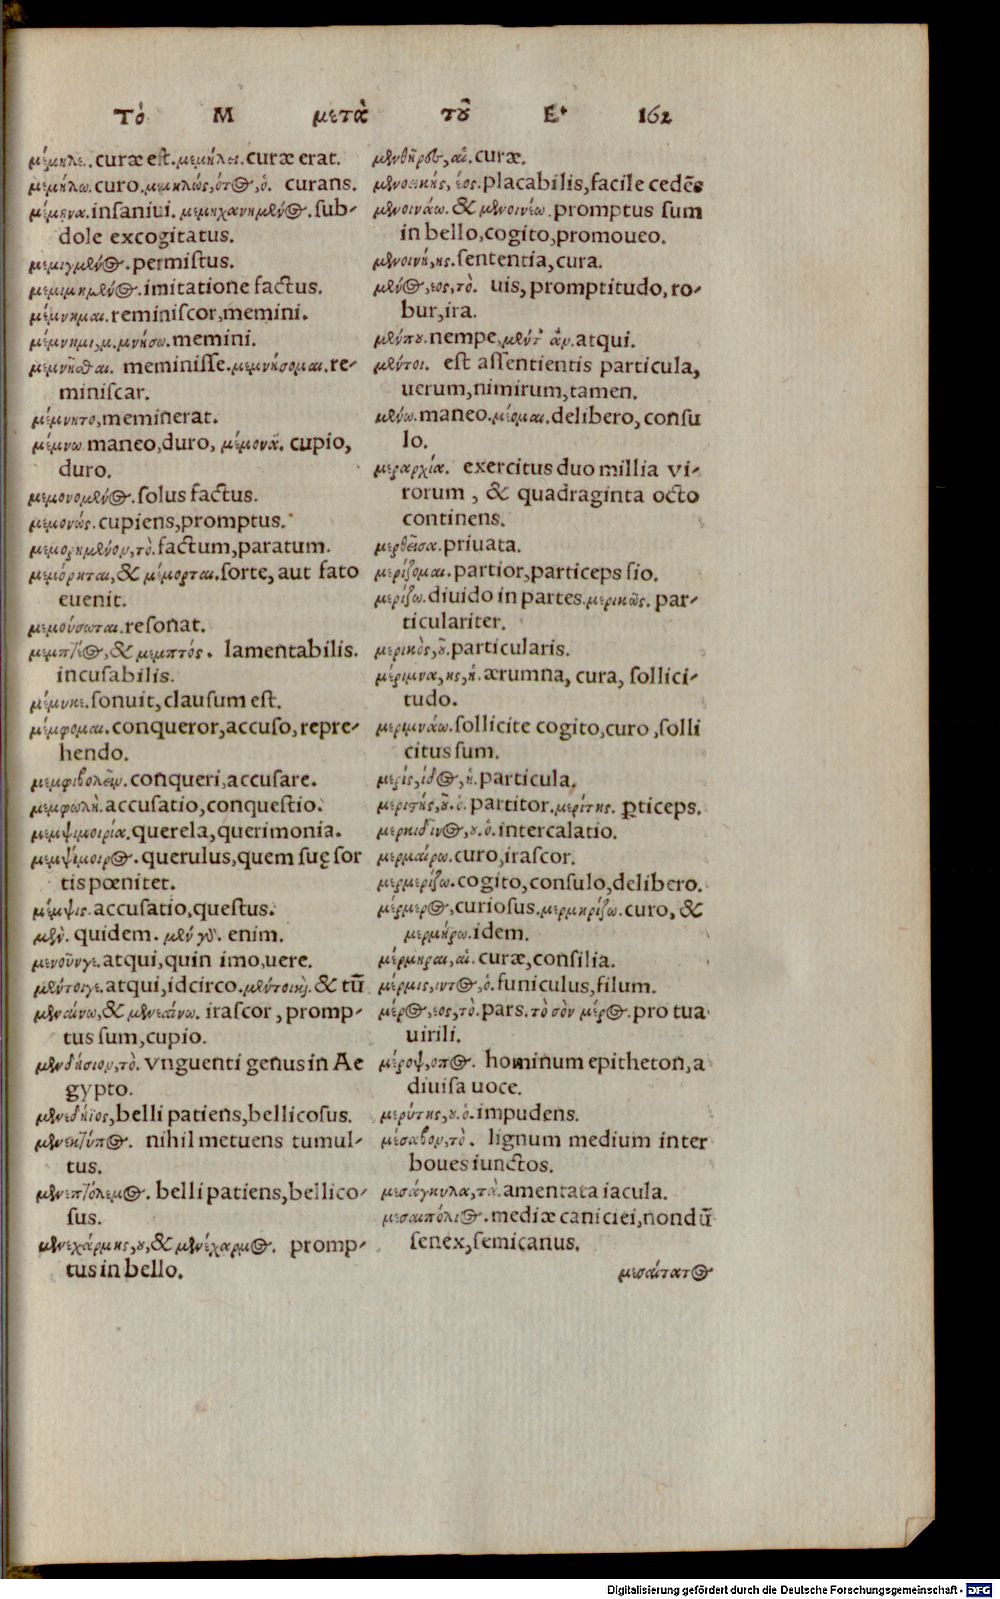 Τὸ Μ μετὰ τοῦ Ε. 162
μέμηλε. curæ est. μεμήλει. curæ erat.
μεμήλω. curo. μεμηλώς, ότος, ὁ. curans.
μέμηνα. insaniui. μεμηχανημένος. sub-
dole excogitatus.
μεμιγμένος. permistus.
μεμιμημένος. imitatione factus.
μέμνημαι. reminiscor, memini.
μέμνημι, μ. μνήσω. memini.
μεμνῆσθαι. meminisse. μεμνήσομαι. re-
miniscar.
μέμνητο, meminerat.
μέμνω. maneo, duro, μέμονα. cupio,
duro.
μεμονομένος. solus factus.
μεμονώς. cupiens, promptus.
μεμορημένον, τὸ. factum, paratum.
μεμόρηται, & μέμορται. sorte, aut fato
euenit.
μεμούσωται. resonat.
μεμπτέος, & μεμπτός. lamentabilis.
incusabilis.
μέμυκε. sonuit, clausum est.
μέμφομαι. conqueror, accuso, repre-
hendo.
μεμφιβολεῖν. conqueri, accusare.
μεμφωλὴ. accusatio, conquestio.
μεμψιμοιρία. querela, querimonia.
μεμψίμοιρος. querulus, quem suę sor
tis pœnitet.
μέμψις. accusatio, questus.
μὲν. quidem. μὲν γὰρ. enim.
μενοῦνγε. atqui, quin imo, uere.
μέντοιγε. atqui, idcirco. μέντοικαὶ. & tũ
μεναίνω, & μενεαίνω. irascor, promp-
tus sum, cupio.
μενδήσιον, τὸ. vnguenti genus in Ae
gypto.
μενεδήϊος, belli patiens, bellicosus.
μενεκτύπος. nihil metuens tumul-
tus.
μενεπτόλεμος. belli patiens, bellico-
sus.
μενεχάρμης, ου, & μενέχαρμος. promp-
tus in bello.
μενθῆραι, αἱ. curæ.
μενοεικής, έος. placabilis, facile cedẽs
μενοινάω. & μενοινέω. promptus sum
in bello, cogito, promoueo.
μενοινή, ης. sententia, cura.
μένος, εος, τὸ. uis, promptitudo, ro-
bur, ira.
μένπου. nempe, μέντ' ἂν. atqui.
μέντοι. est assentientis particula,
uerum, nimirum, tamen.
μένω. maneo. μέομαι. delibero, consu
lo.
μεραρχία. exercitus duo millia vi-
rorum, & quadraginta octo
continens.
μερθεῖσα. priuata.
μερίζομαι. partior, particeps sio.
μερίζω. diuido in partes. μερικῶς. par-
ticulariter.
μερικὸς, οῦ. particularis.
μέριμνα, ης, ἡ. ærumna, cura, sollici-
tudo.
μεριμνάω. sollicite cogito, curo, solli
citus sum.
μερίς, ίδος, ἡ. particula.
μεριτής, οῦ. ὁ. partitor. μερίτης. ꝑticeps.
μερκιδίνος, ου. ὁ. intercalatio.
μερμαίρω. curo, irascor.
μερμερίζω. cogito, consulo, delibero.
μέρμερος, curiosus. μερμηρίζω. curo, &
μερμήρω. idem.
μέρμηραι, αἱ. curæ, consilia.
μέρμις, ιντος, ὁ. funiculus, filum.
μέρος, εος, τὸ. pars. τὸ σὸν μέρος. pro tua
uirili.
μέροψ, οπος. hominum epitheton, a
diuisa uoce.
μερύτης, ου. ὁ. impudens.
μέσαβον, τὸ. lignum medium inter
boues iunctos.
μεσάγκυλα, τὰ. amentata iacula.
μεσαιπόλιος. mediæ caniciei, nondũ
senex, semicanus.
μεσαίτατος
Digitalisierung gefördert durch die Deutsche Forschungsgemeinschaft - DFG